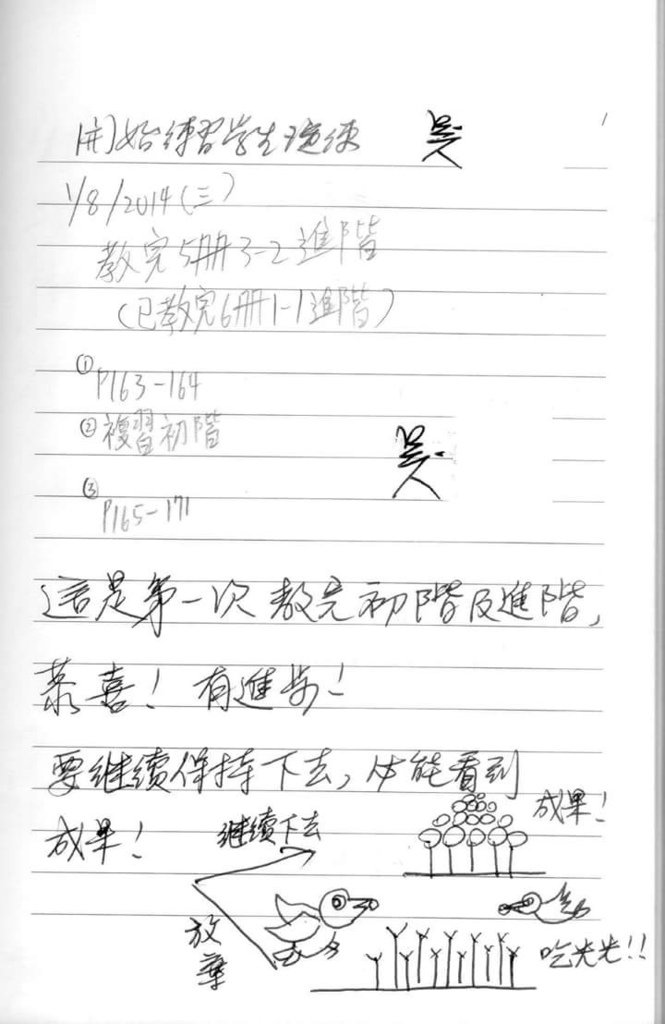 開始練習學生演練 吴 1
1/8/2014(三)
教完5冊3-2進階
(已教完6冊1-1進階)
①P163-164
②複習初階
吴
③P165-171
這是第一次教完初階及進階,
恭喜! 有進步!
要继续保持下去,才能看到
成果!
继续下去
成果!
放棄
吃光光!!